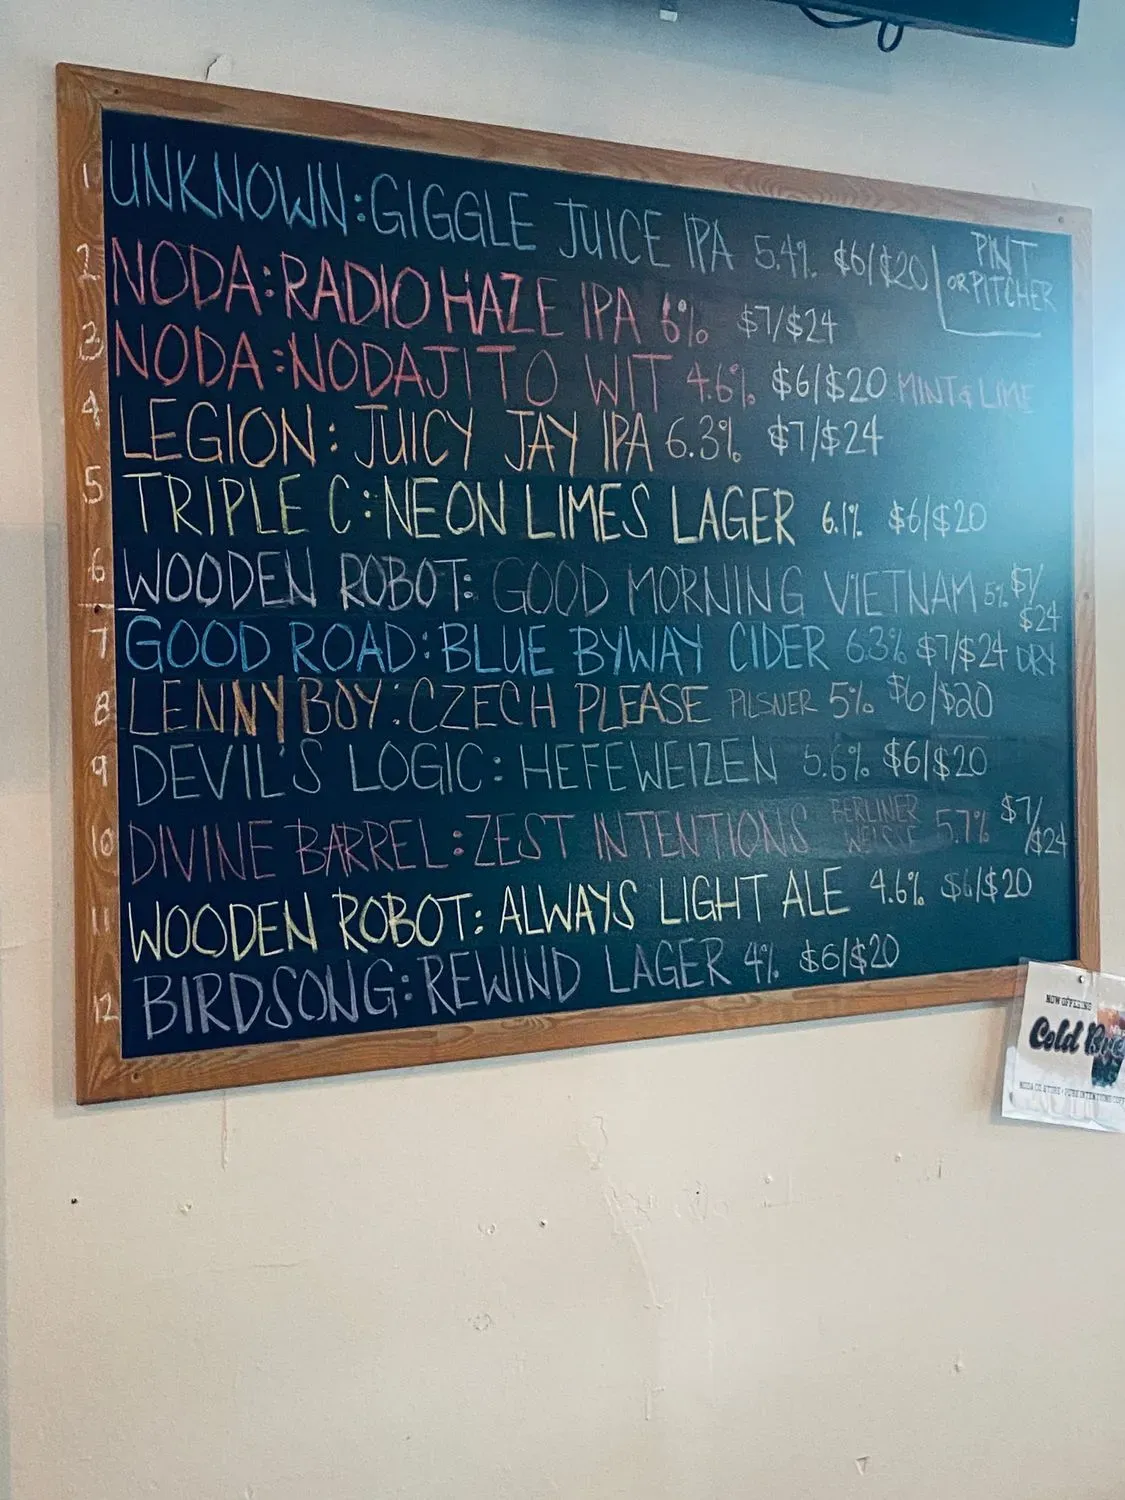 1 UNKNOWN: GIGGLE JUICE IPA 5.4% $6/$20 PINT OR PITCHER
2 NODA: RADIO HAZE IPA 6% $7/$24
3 NODA: NODAJITO WIT 4.6% $6/$20 MINT & LIME
4 LEGION: JUICY JAY IPA 6.3% $7/$24
5 TRIPLE C: NEON LIMES LAGER 6.1% $6/$20
6 WOODEN ROBOT: GOOD MORNING VIETNAM 5% $7/$24
7 GOOD ROAD: BLUE BYWAY CIDER 6.3% $7/$24 DRY
8 LENNYBOY: CZECH PLEASE PILSNER 5% $6/$20
9 DEVIL'S LOGIC: HEFEWEIZEN 5.6% $6/$20
10 DIVINE BARREL: ZEST INTENTIONS BERLINER WEISSE 5.7% $7/$24
11 WOODEN ROBOT: ALWAYS LIGHT ALE 4.6% $6/$20
12 BIRDSONG: REWIND LAGER 4% $6/$20
NOW OFFERING
Cold